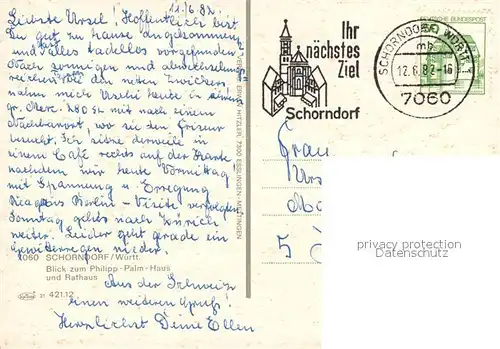 11.6.82.
Liebste Ursel! Hoffentlich bist
Du gut zu hause angekommen
und hast alles tadellos vorgefunden.
Nach sonnigen und abwechslungs-
reichen Tagen den neuen
nahm mich Uschi heute in ihrem
gr. Merc. 280 SE mit nach einem
Nachbarort, wo sie den Friseur
besucht. Ich sitze derweile in
einem Café rechts auf der Karte
nachdem wir heute Vormittag
mit Spannung u. Erregung
Reagans Berlin - Visite verfolgten.
Sonntag gehts nach Zürich
weiter. Leider geht gerade ein
Gewitterregen nieder.
7060 SCHORNDORF/Württ.
Blick zum Philipp-Palm-Haus
und Rathaus
421.12
Aus der Schweiz
einen weiteren Gruß!
Herzlichst Deine Ellen
VERLAG ERWIN HITZLER, 7300 ESSLINGEN-METTINGEN
Ihr
nächstes
Ziel
Schorndorf
SCHORNDORF, WÜRTT.
mb
12.6.82-16
7060
DEUTSCHE BUNDESPOST
Frau
Urs
5
privacy protection
Datenschutz